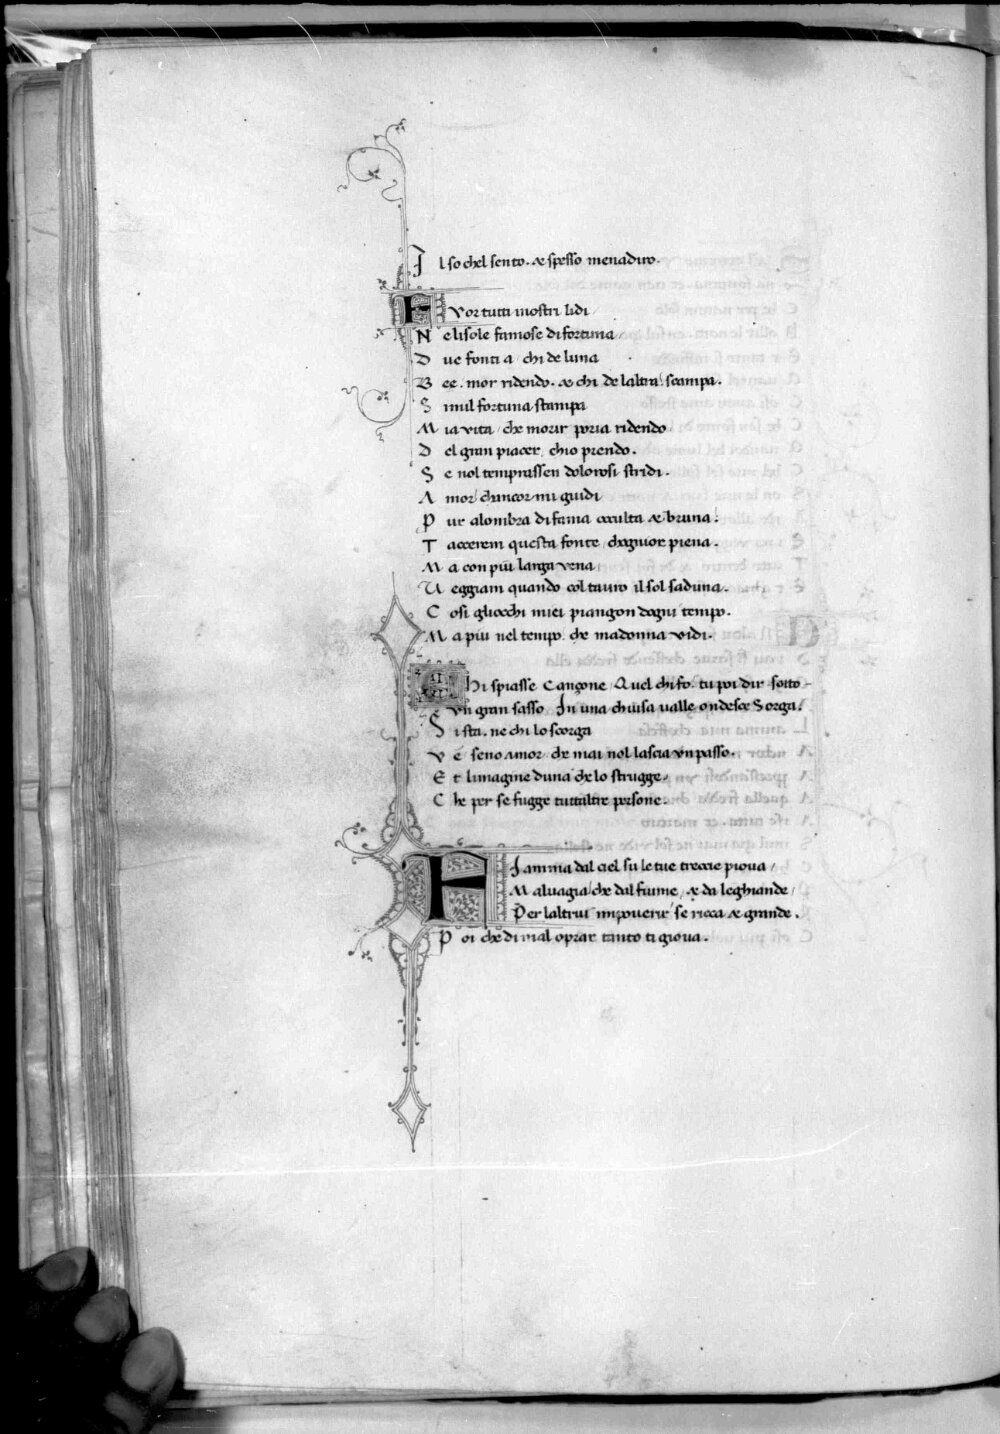 I l so chel sento. & spesso menadiro.
F vor tutti nostri lidi
N e lisole famose di fortuna
D ue fonti a / chi de luna
B ee. mor ridendo. & chi de laltra / scampa.
S imil fortuna stampa
M ia vita / che morir poria ridendo
D el gran piacer / chio prendo.
S e nol temprassen dolorosi stridi.
A mor / chancor mi guidi
P ur alombra di fama occulta & bruna.
T accerem questa fonte / chognior piena.
M a con piu larga vena
V eggiam quando col tauro il sol saduna.
C osi gliocchi miei piangon dogni tempo.
M a piu nel tempo. che madonna vidi.
Chi spiasse Cançone Quel chi fo. tu poi dir sotto
vn gran sasso In una chiusa ualle ondesce Sorga.
S i sta. ne chi lo scorga
V e seno amor che mai nol lascia vn passo.
E t limagine duna che lo strugge.
C he per se fugge tuttaltre persone.
Fiamma dal ciel su le tue treccie piova /
Malvagia / che dal fiume / & da le ghiande /
Per laltrui impouerir se ricca & grande.
P oi che di mal oprar tanto ti giova.